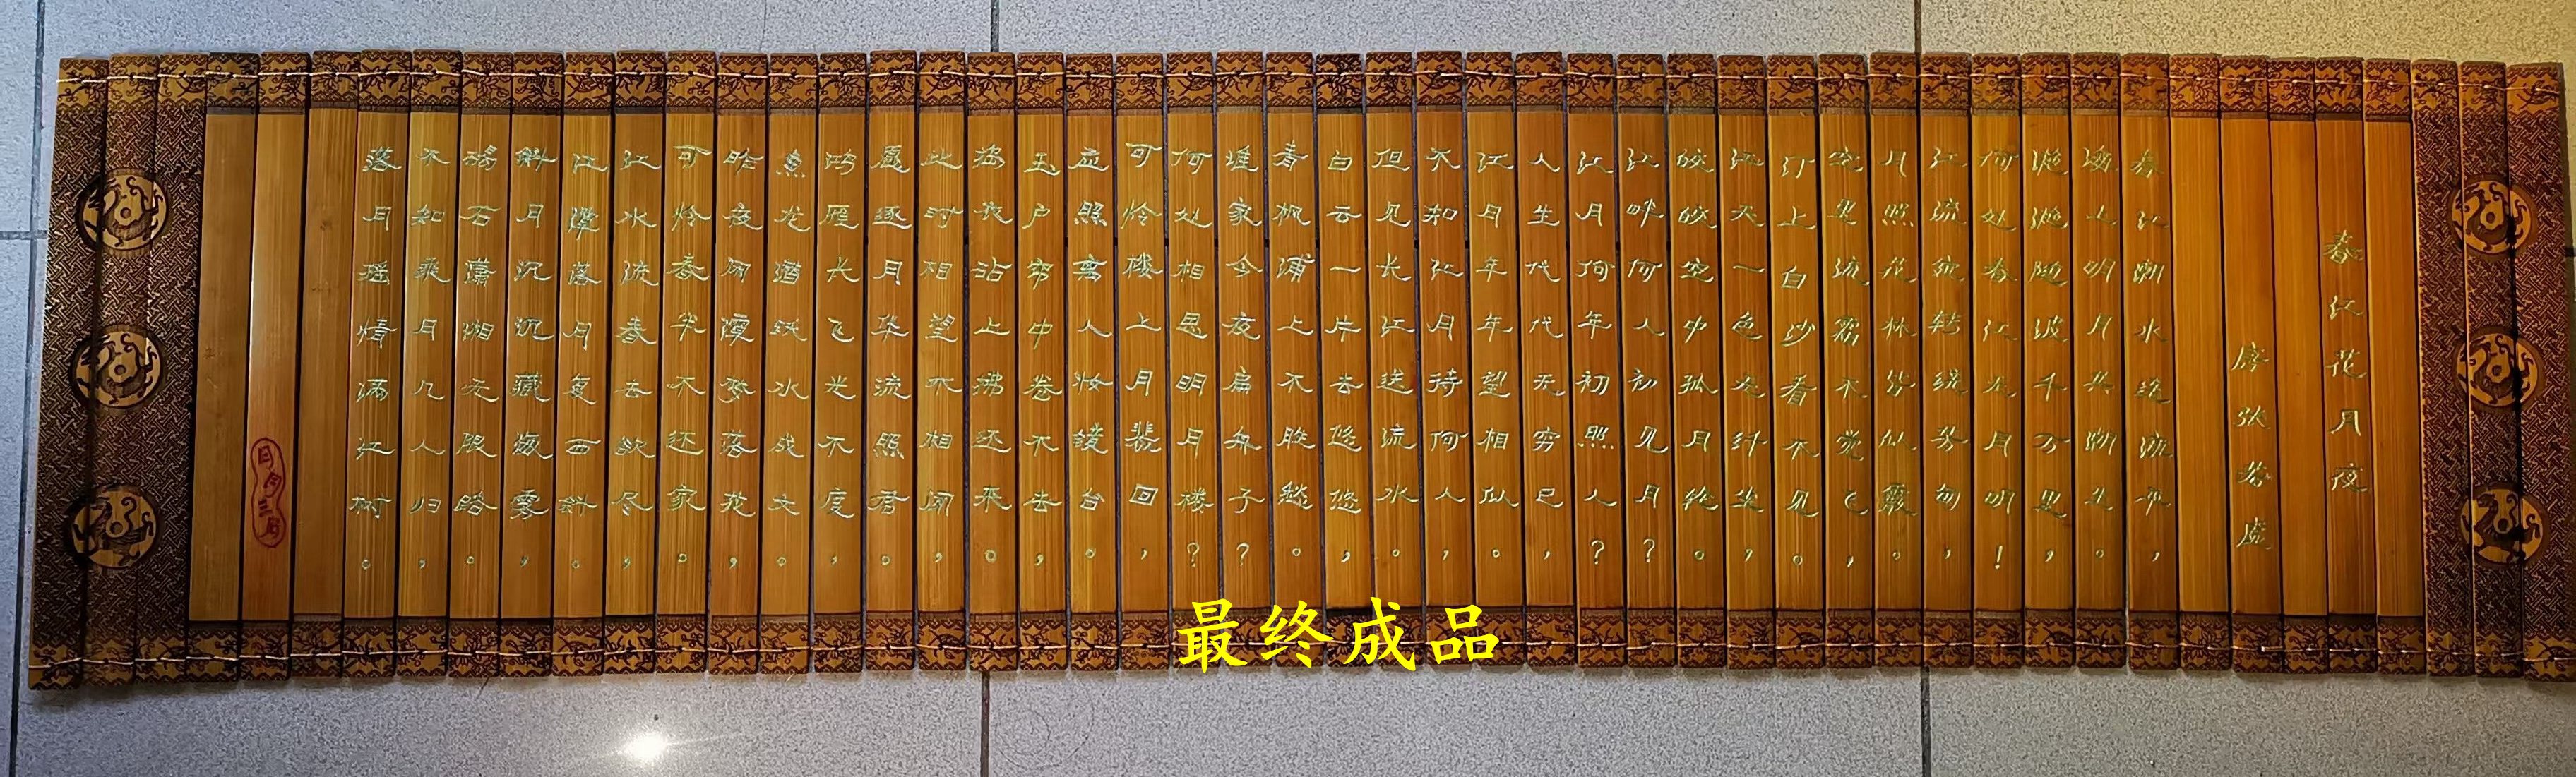 春江花月夜
唐张若虚
春江潮水连流平，
海上明月共潮生。
滟滟随波千万里，
何处春江无月明！
江流宛转绕芳甸，
月照花林皆似霰。
空里流霜不觉飞，
汀上白沙看不见。
江天一色无纤尘，
皎皎空中孤月轮。
江畔何人初见月？
江月何年初照人？
人生代代无穷已，
江月年年望相似。
不知江月待何人，
但见长江送流水。
白云一片去悠悠，
青枫浦上不胜愁。
谁家今夜扁舟子？
何处相思明月楼？
可怜楼上月裴回，
应照离人妆镜台。
玉户帘中卷不去，
捣衣砧上拂还来。
此时相望不相闻，
愿逐月华流照君。
鸿雁长飞光不度，
鱼龙潜跃水成文。
昨夜闲潭梦落花，
可怜春半不还家。
江水流春去欲尽，
江潭落月复西斜。
斜月沉沉藏海雾，
碣石潇湘无限路。
不知乘月几人归，
落月摇情满江树。
最终成品